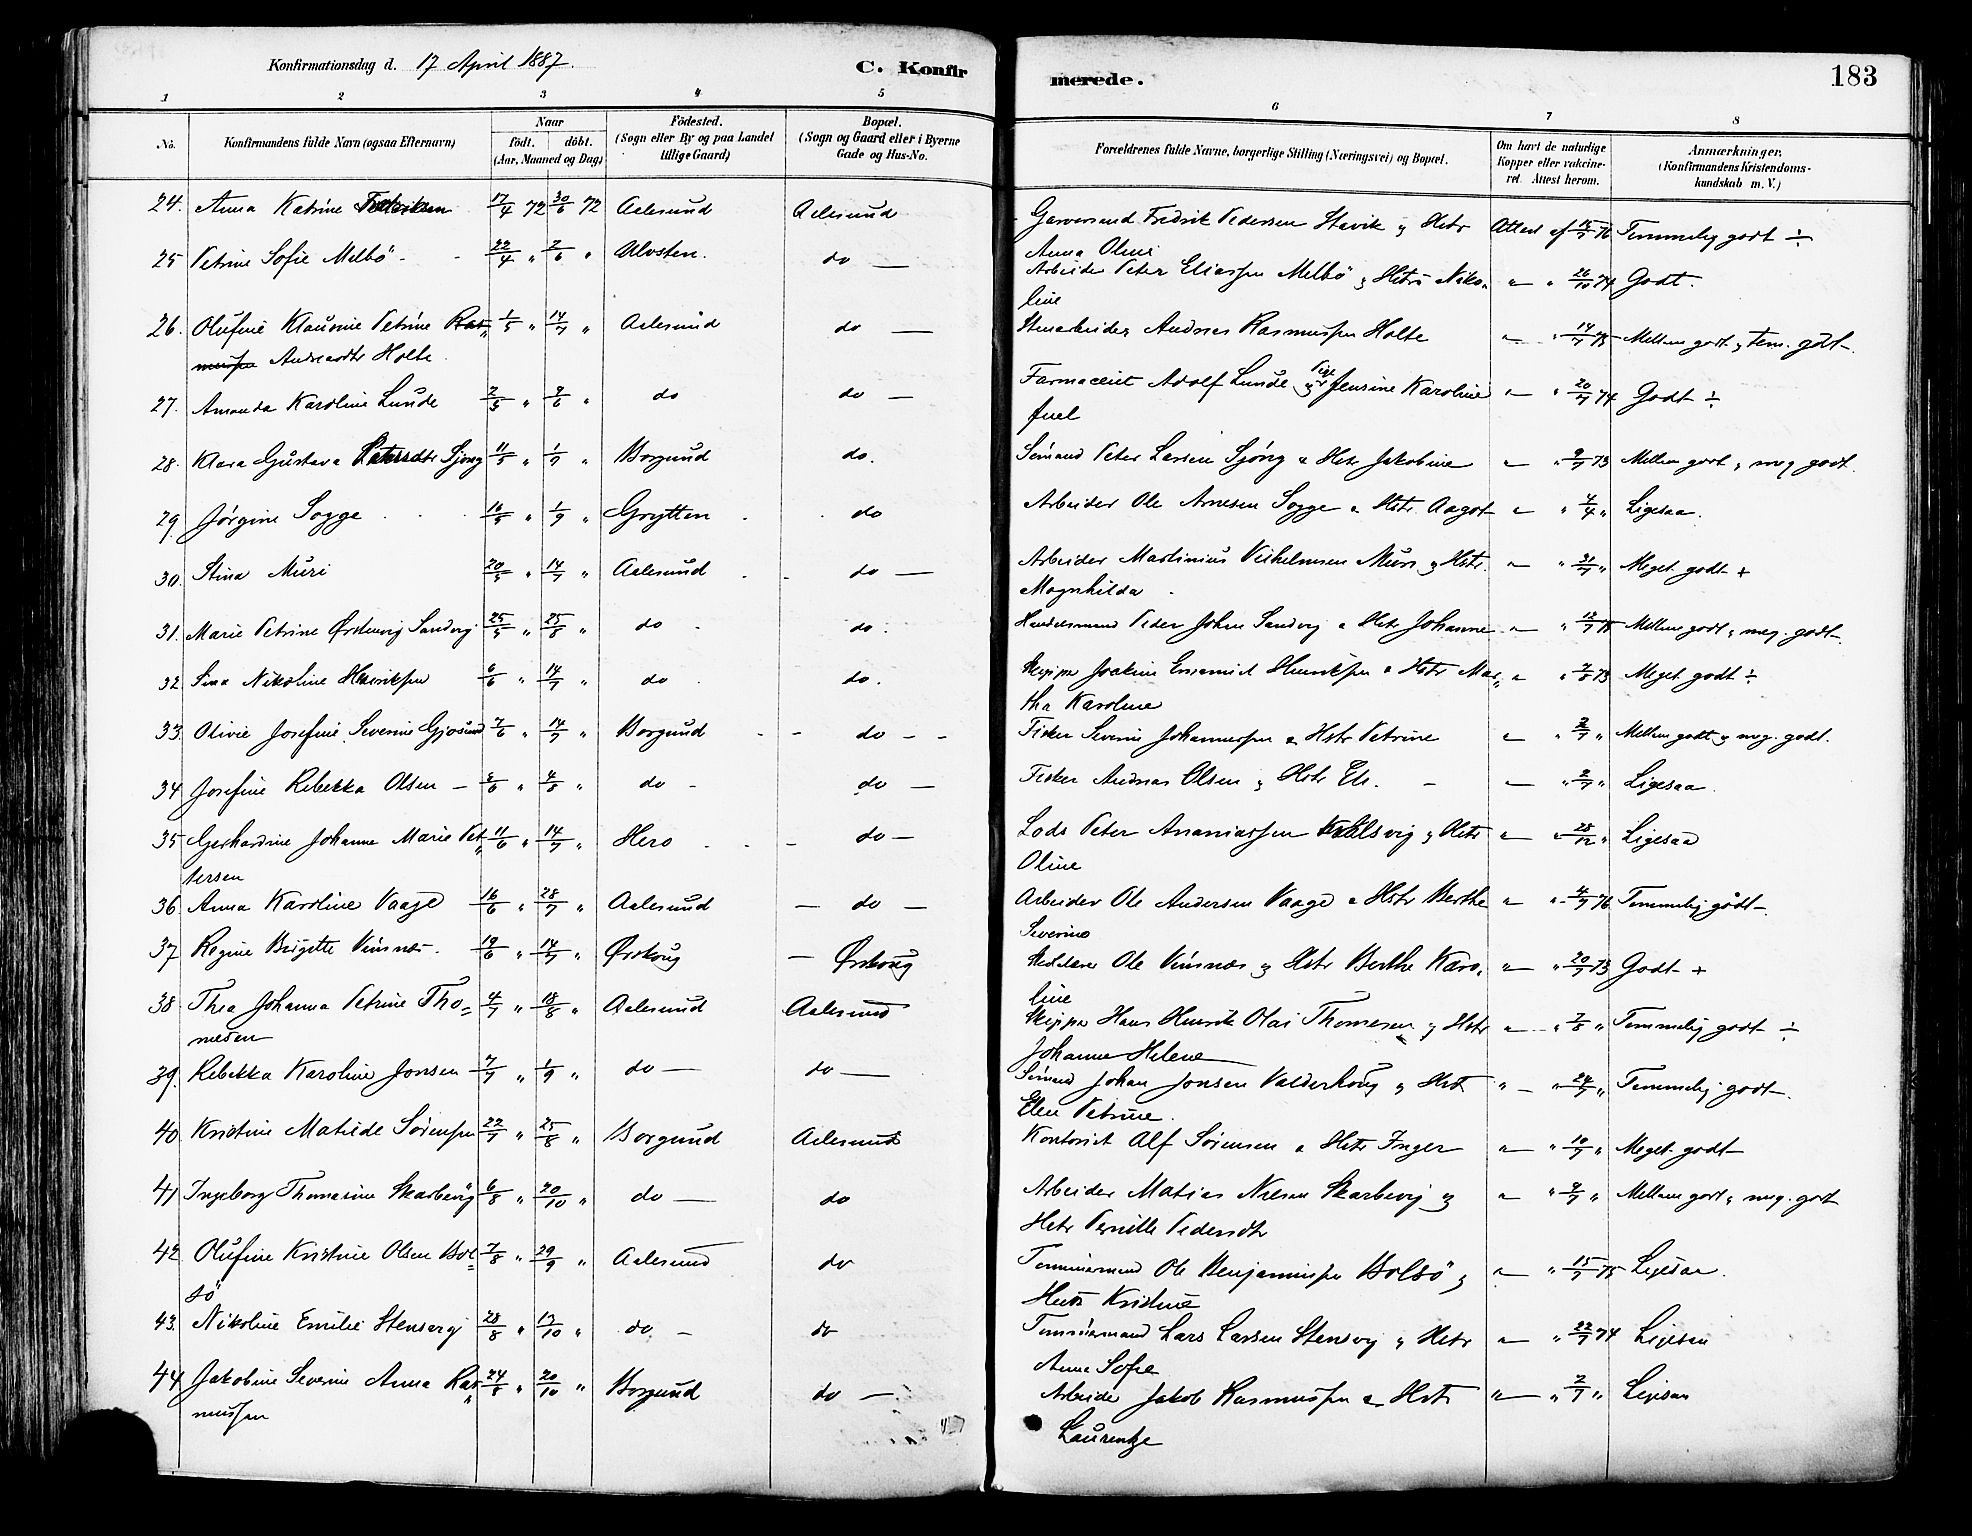 Konfirmationsdag d. 17 April 1887.
C. Konfirmerede.
183
1 2 3 4 5 6 7 8
No. Konfirmandens fulde Navn (ogsaa Efternavn) Naar födt. döbt. (Aar, Maaned og Dag) Födested. (Sogn eller By og paa Landet tillige Gaard) Bopæl. (Sogn og Gaard eller i Byerne Gade og Hus-No. Forældrenes fulde Navne, borgerlige Stilling (Næringsvei) og Bopæl. Om havt de naturlige Kopper eller vakcineret. Attest herom. Anmærkninger. (Konfirmandens Kristendomskundskab m. V.)
24. Anna Katrine 17/4 72 30/6 72 Aalesund Aalesund Garversvend Fredrik Pedersen Stavik og Hstr Attest af 15/7 76 Temmelig godt ÷
Anna Oline
25 Petrine Sofie Melbö 22/4 " 2/6 " Ulvsten. do — Arbeider Peter Eliassen Melbö og Hstr Niko- " 26/10 74 Godt.
line
26. Olufine Klausine Petrine Ras- 1/5 " 14/7 " Aalesund do — Stenarbeider Andreas Rasmussen Holte — " 14/7 75 Mellem godt og tem. godt
mussen Andreasdtr Holte.
27. Amanda Karoline Lunde 2/5 " 9/6 " do do — Farmaceut Adolf Lunde og Pige Jensine Karoline — " 20/7 74 Godt ÷
Juel
28. Klara Gustava Petersdtr Sjong 11/5 " 1/9 " Borgund do. Sömand Peter Larsen Sjöng & Hstr Jakobine — " 9/7 73 Mellem godt og meg godt.
29. Jørgine Sogge 16/5 " 1/9 " Grytten do Arbeider Ole Arnesen Sogge & Hstr. Aagot — " 4/4 " Ligesaa.
30. Stina Muri 20/5 " 14/7 " Aalesund do — Arbeider Martinius Vilhelmsen Muri og Hstr. — " 31/7 " Meget godt +
Magnhilda
31. Marie Petrine Ørstenvig Sandvig 25/5 " 25/8 " do do. Handelsmand Peder Johan Sandvig & Hstr Johanne — " 12/7 75 Mellem godt og meg. godt.
32. Sina Nikoline Henriksen 6/6 " 14/7 " do do. Skipper Joakim Emanuel Henriksen & Hstr Mar- " 7/8 73 Meget godt ÷
tha Karoline
33. Olivie Josefine Severine Gjøsund 7/6 " 14/7 " Borgund do Fisker Severin Johannessen & Hstr Petrine — " 2/7 " Mellem godt og meg. godt.
34 Josefine Rebekka Olsen 8/6 " 4/8 " do do — Fisker Andreas Olsen og Hstr Eli. — " 2/7 " Ligesaa.
35 Gerhardine Johanne Marie Pet- 11/6 " 14/7 " Hero do — Lods Peter Ananiassen og Hstr " 28/12 " Ligesaa
tersen Oline
36 Anna Karoline Vaage 16/6 " 28/7 " Aalesund — do — Arbeider Ole Andersen Vaage & Hstr Berthe " 4/7 76 Temmelig godt
Severine
37 Regine Brigitte Viksnæs. 19/6 " 14/7 " Ørskoug — Ørskoug Ole Viksnæs og Hstr Berthe Karo- " 20/7 73 Godt +
line
38 Thea Johanna Petrine Tho- 4/7 " 18/8 " Aalesund Aalesund Skipper Hans Henrik Olai Thomesen og Hstr — " 7/8 " Temmelig godt ÷
mesen Johanne Helene
39. Rebekka Karoline Jonsen 7/7 " 1/9 " do — do — Sömand Johan Jonsen Valderhoug og Hst " 24/7 " Temmelig godt.
Elen Petrine.
40 Kristine Matilde Sørensen 22/7 " 25/8 " Borgund Aalesund Kontorist Alf Sörensen & Hstr Inger — " 10/7 " Meget godt
41 Ingeborg Thomasine Skarbøvig 6/8 " 20/10 " do — do Arbeider Matias Nilsen Skarbøvig og — " 4/7 " Mellem godt og meg. godt
Hstr Pernille Pedersdtr
42 Olufine Kristine Olsen Bol- 7/8 " 29/9 " Aalesund do Tømmermand Ole Benjaminsen Bolsö og — " 15/7 75 Ligesaa.
sö Hustr Kristine
43. Nikoline Emilie Stensvig 28/8 " 13/10 " do — do Tømmermand Lars Larsen Stensvig og Hstr — " 22/7 74 Ligesaa
Anne Sofie
44 Jakobine Severine Anna Ras- 24/8 " 20/10 " Borgund do — Arbeider Jakob Rasmussen & Hstr — " 2/7 " Ligesaa
mussen Laurentze